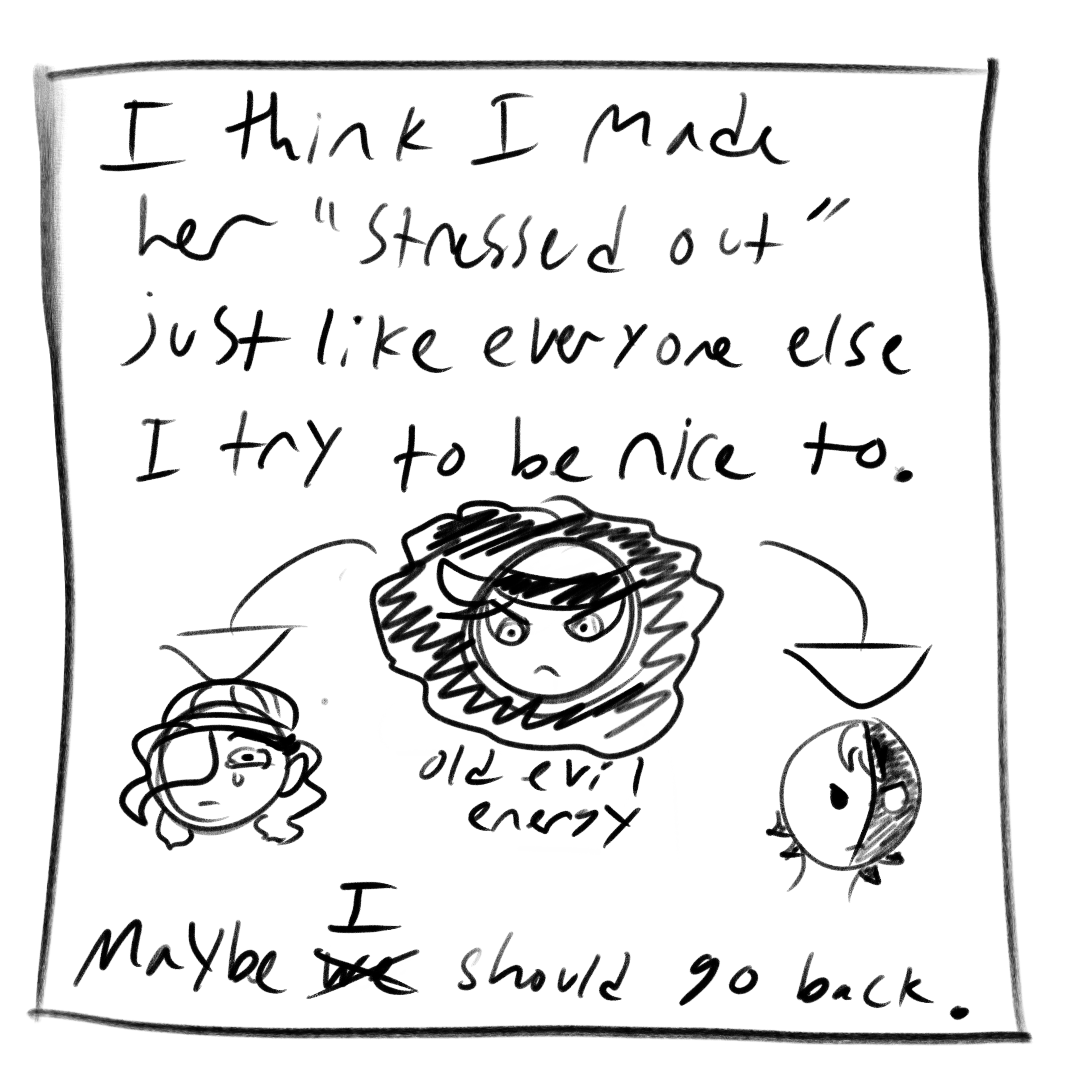 I think I made
her "stressed out"
just like everyone else
I try to be nice to.
old evil
energy
I
Maybe we should go back.